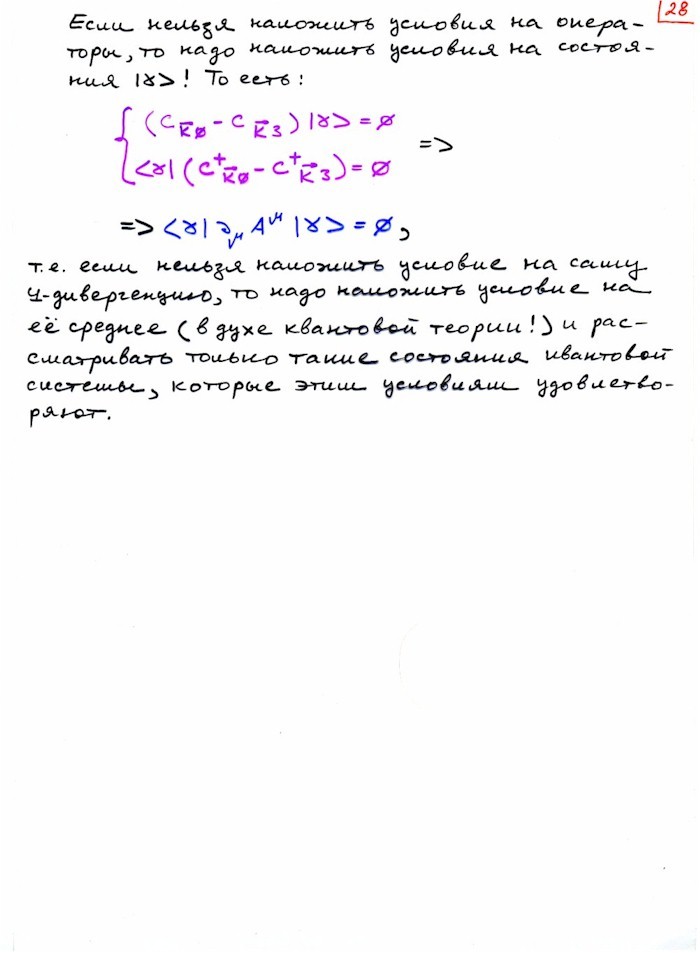 28
Если нельзя наложить условия на опера-
торы, то надо наложить условия на состоя-
ния |γ>! То есть:
{ (C_k⃗0 - C_k⃗3) |γ> = 0
<γ| (C⁺_k⃗0 - C⁺_k⃗3) = 0 =>
=> <γ| ∂_μ A^μ |γ> = 0,
т.е. если нельзя наложить условие на саму
4-дивергенцию, то надо наложить условие на
её среднее (в духе квантовой теории!) и рас-
сматривать только такие состояния квантовой
системы, которые этим условиям удовлетво-
ряют.